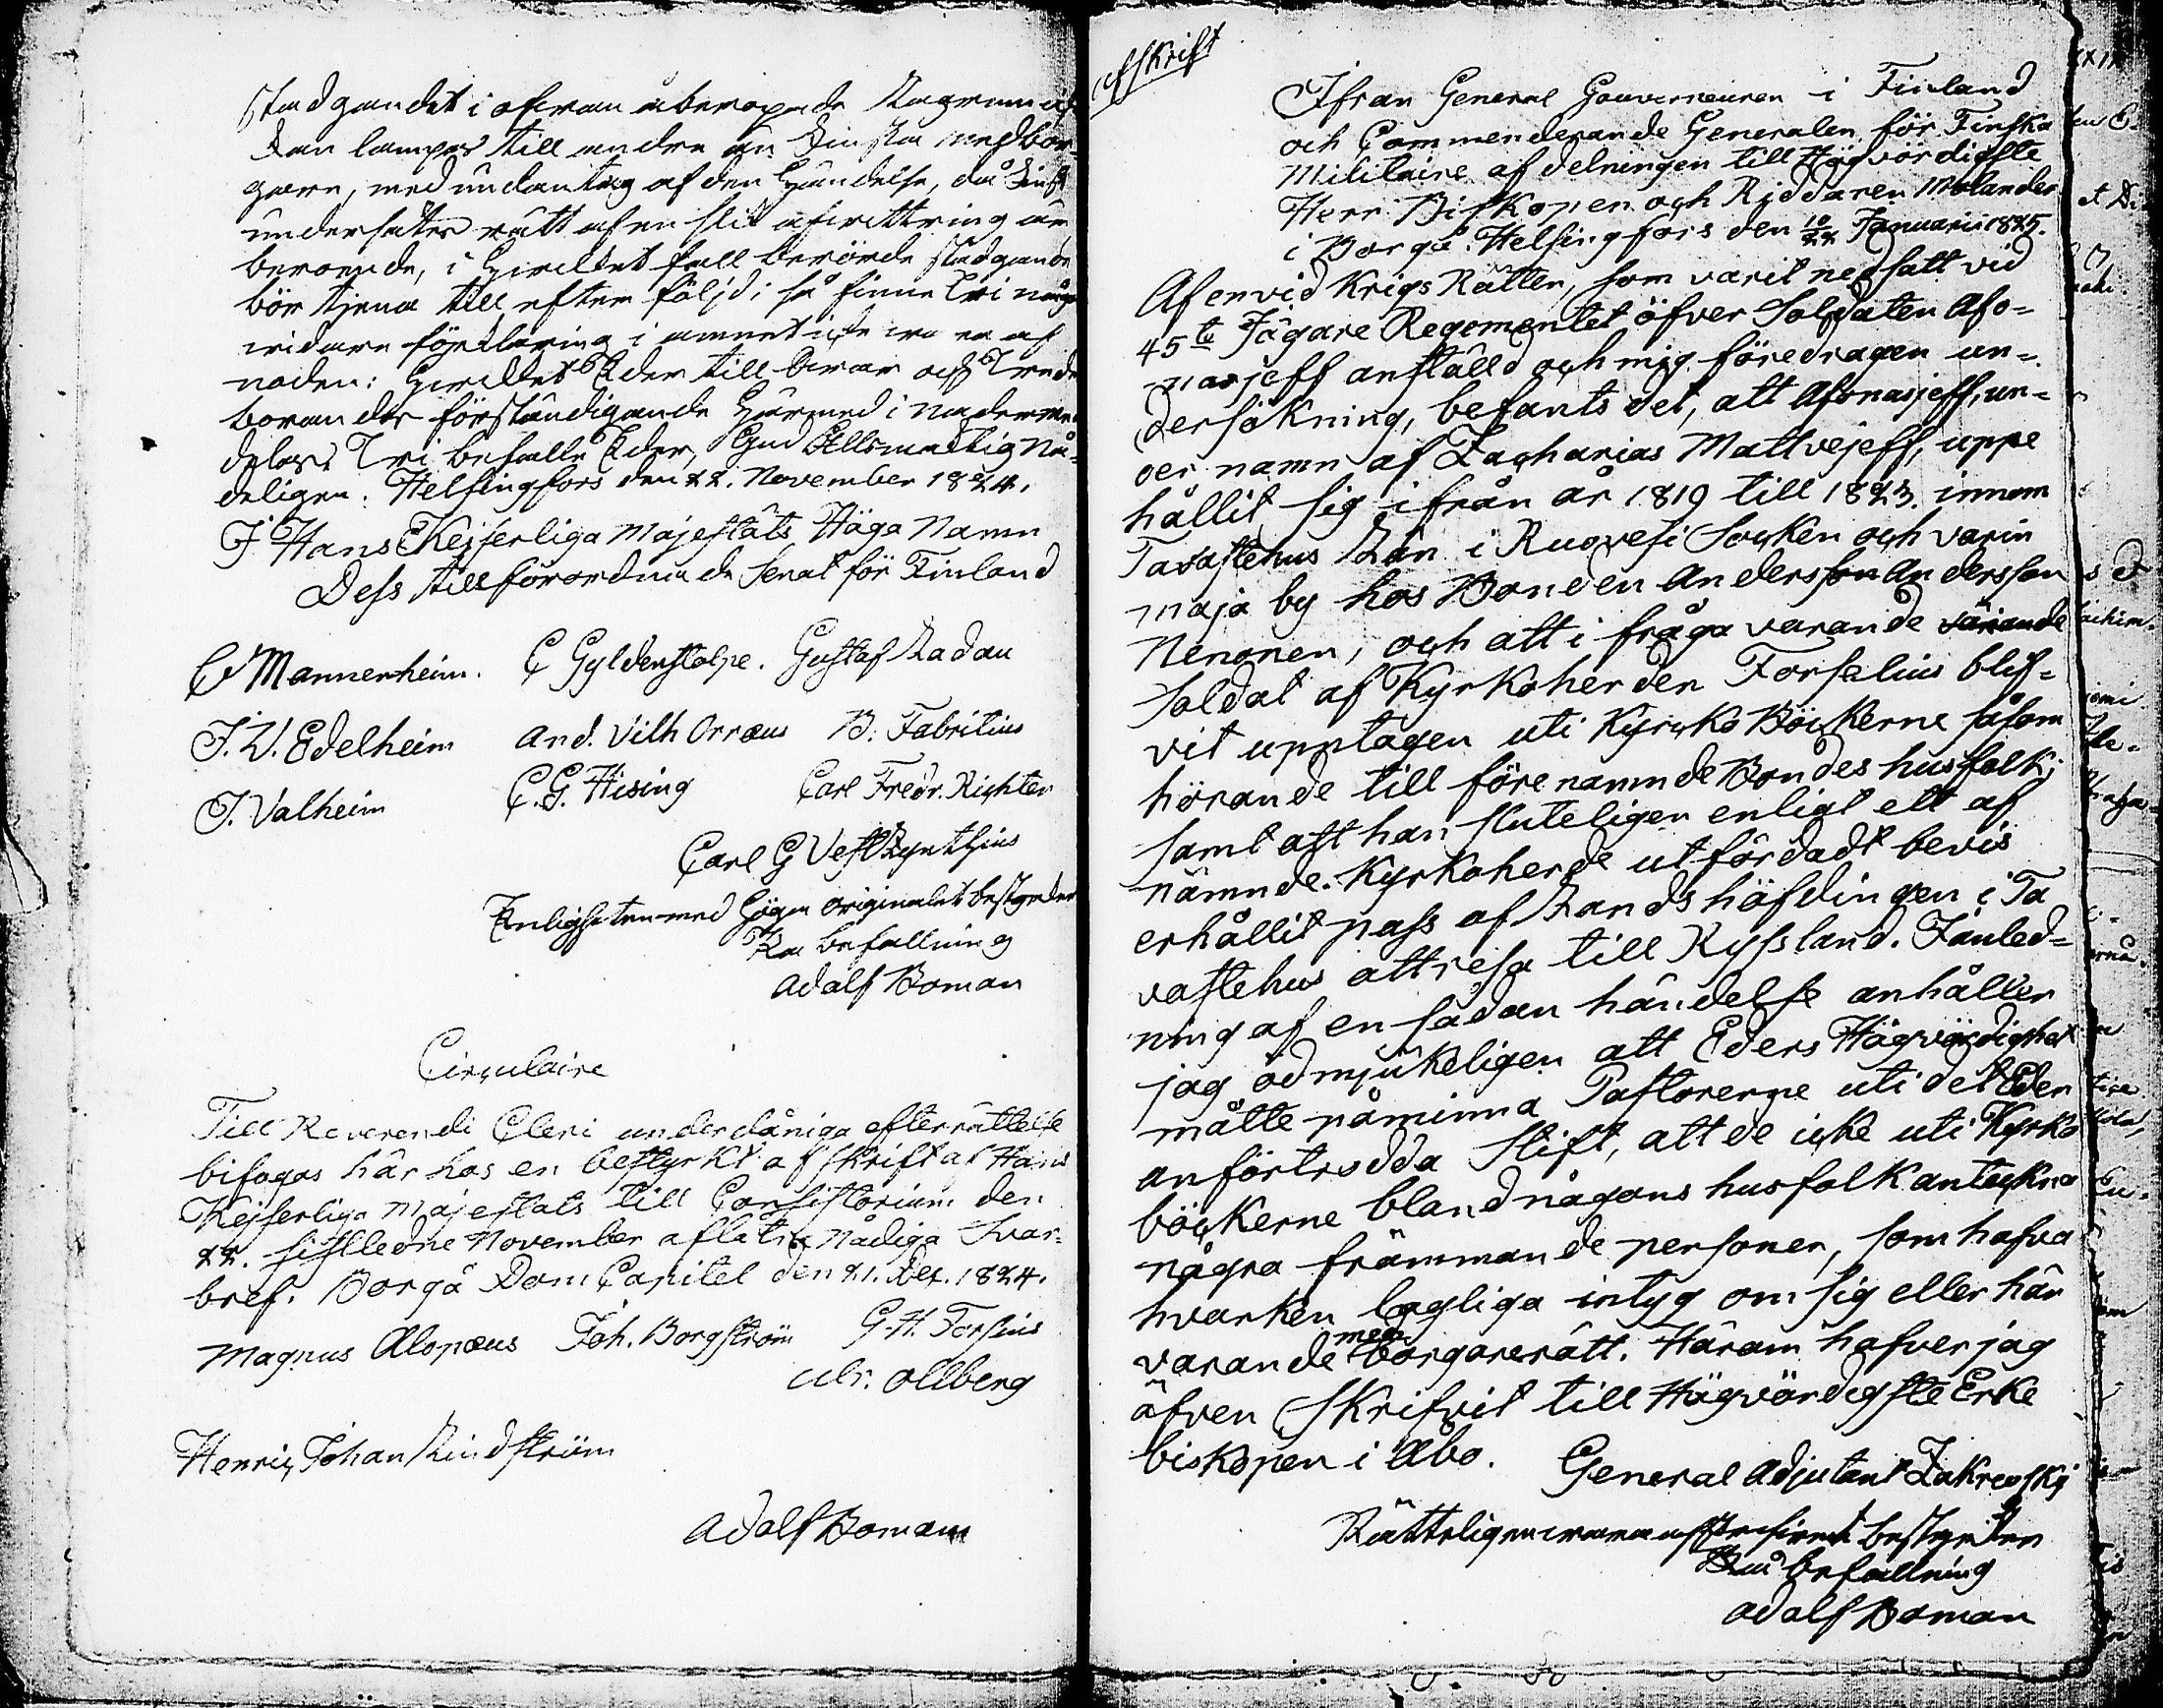 stadgandet i ofvan åberopade
kan lämpas till andra än Finska medbor-
gare, med undantag af den händelse, då Finsk
undersåtes rätt af en slik afvittring är
beroende, i hvilket fall berörde stadgande
bör tjena till efterföljd; så finne Vi någon
vidare förklaring i ämnet icke vara af
nöden: hvilket Eder till svar och Veder-
börandes förständigande härmed i nåder med-
delas. Vi befalle Eder, Gud Allsmäktig nå-
deligen. Helsingfors den 22. November 1824.
I Hans Kejserliga Majestäts Höga Namn
Dess tillförordnade Senat för Finland
C Mannerheim. C Gyldenstolpe. Gustaf Ladau
J. V. Edelheim And. Vilh Orræus B. Fabritius
J. Valheim C. G. Hising Carl Fredr. Richter
Carl G Vestzynthius
Enligheten med höga originalet bestyrker
På befallning
Adolf Boman
Circulaire
Till Reverendi Cleri underdåniga efterrättelse
bifogas här hos en bestyrkt afskrift af Hans
Kejserliga Majestäts till Consistorium den
22. sistledne November aflåtna Nådiga Svar-
bref. Borgå Dom Capitel den 21. Dec. 1824.
Magnus Alopæus Joh. Borgström G. H. Forsius
Ulr. Ollberg
Henric Johan Lindström
Adolf Boman
Afskrift
Ifran General Gouverneuren i Finland
och Commenderande Generalen för Finska
Militaire afdelningen till Högvördigste
Herr Biskopen och Riddaren Molander
i Borgå. Helsingfors den 10/22 Januarii 1825.
Af en vid Krigs Rätten, som varit nedsatt vid
45te Jägare Regementet öfver Soldaten Afo-
nasjeff anställd och mig föredragen un-
dersökning, befants det, att Afonasjeff, un-
der namn af Zacharias Mattvejeff, uppe
hållit sig ifrån år 1819 till 1823. innom
Tavastehus Län i Ruovesi Socken och varin
maja by hos Bonden Andersson Andersson
Nenonen, och att i fråga varande
Soldat af Kyrkoherden Forselius blif-
vit upptagen uti Kyrcko Böckerne såsom
hörande till förenamnde Bondes husfolk;
samt att han sluteligen enligt ett af
nämnde Kyrkoherde utfördadt bevis
erhållit pass af Landshöfdingen i Ta
vastehus att resa till Ryssland. I anled-
ning af en sådan händelse anhåller
jag ödmjukeligen att Eders Högvördighet
måtte påminna Pastorerne uti det Eder
anförtrodda Stift, att de icke uti Kyrko
böckerne bland någons husfolk anteckna
några främmande personer, som hafva
hvarken lagliga intyg om sig eller här
varande medborgarerätt. Härom hafver jag
äfven skrifvit till Högvördigste Erke
biskopen i Åbo.
General Adjutant Zakrevskij
Rätteligen vara afskrifvet bestyrker
På befallning
Adolf Boman